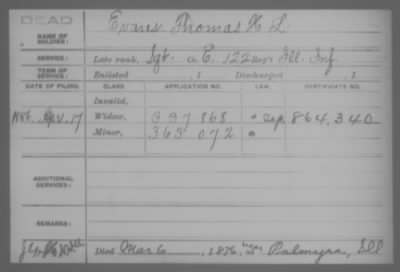 DEAD
NAME OF SOLDIER: Evans, Thomas H. L.
SERVICE: Late rank, Sgt. Co. E, 122 Reg't Ill. Inf.
TERM OF SERVICE: Enlisted , 1 Discharged , 1
DATE OF FILING. CLASS. APPLICATION NO. LAW. CERTIFICATE NO.
Invalid,
1886, Apr. 17 Widow, 337 868 864,340
Minor, 365 072
ADDITIONAL SERVICES:
REMARKS:
Died Mar. 6, 1876, near Palmyra, Ill